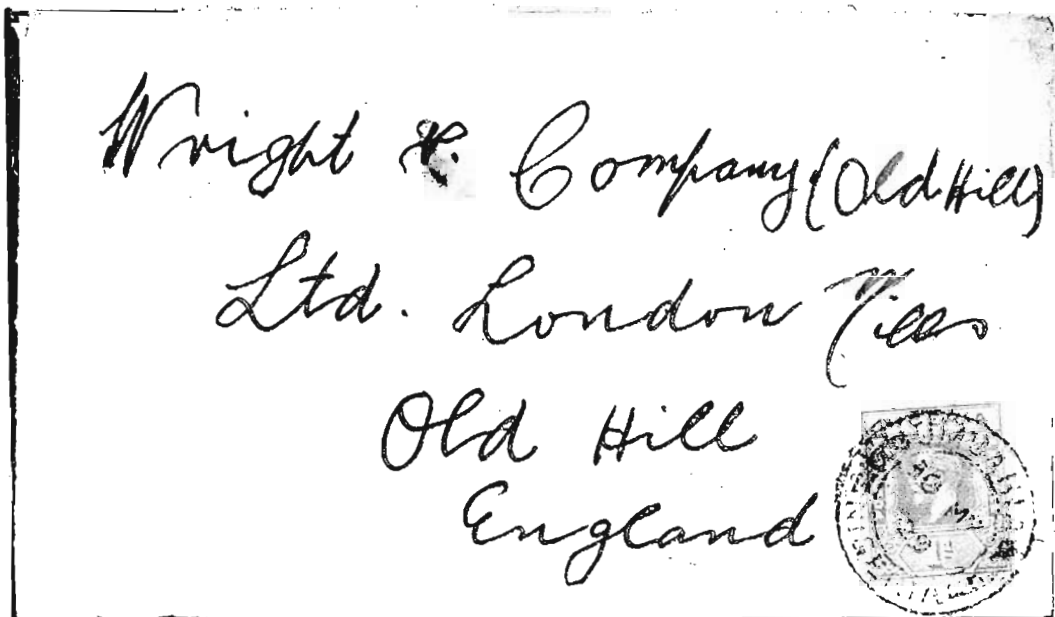 Wright & Company (Old Hill)
Ltd. London Mills
Old Hill
England